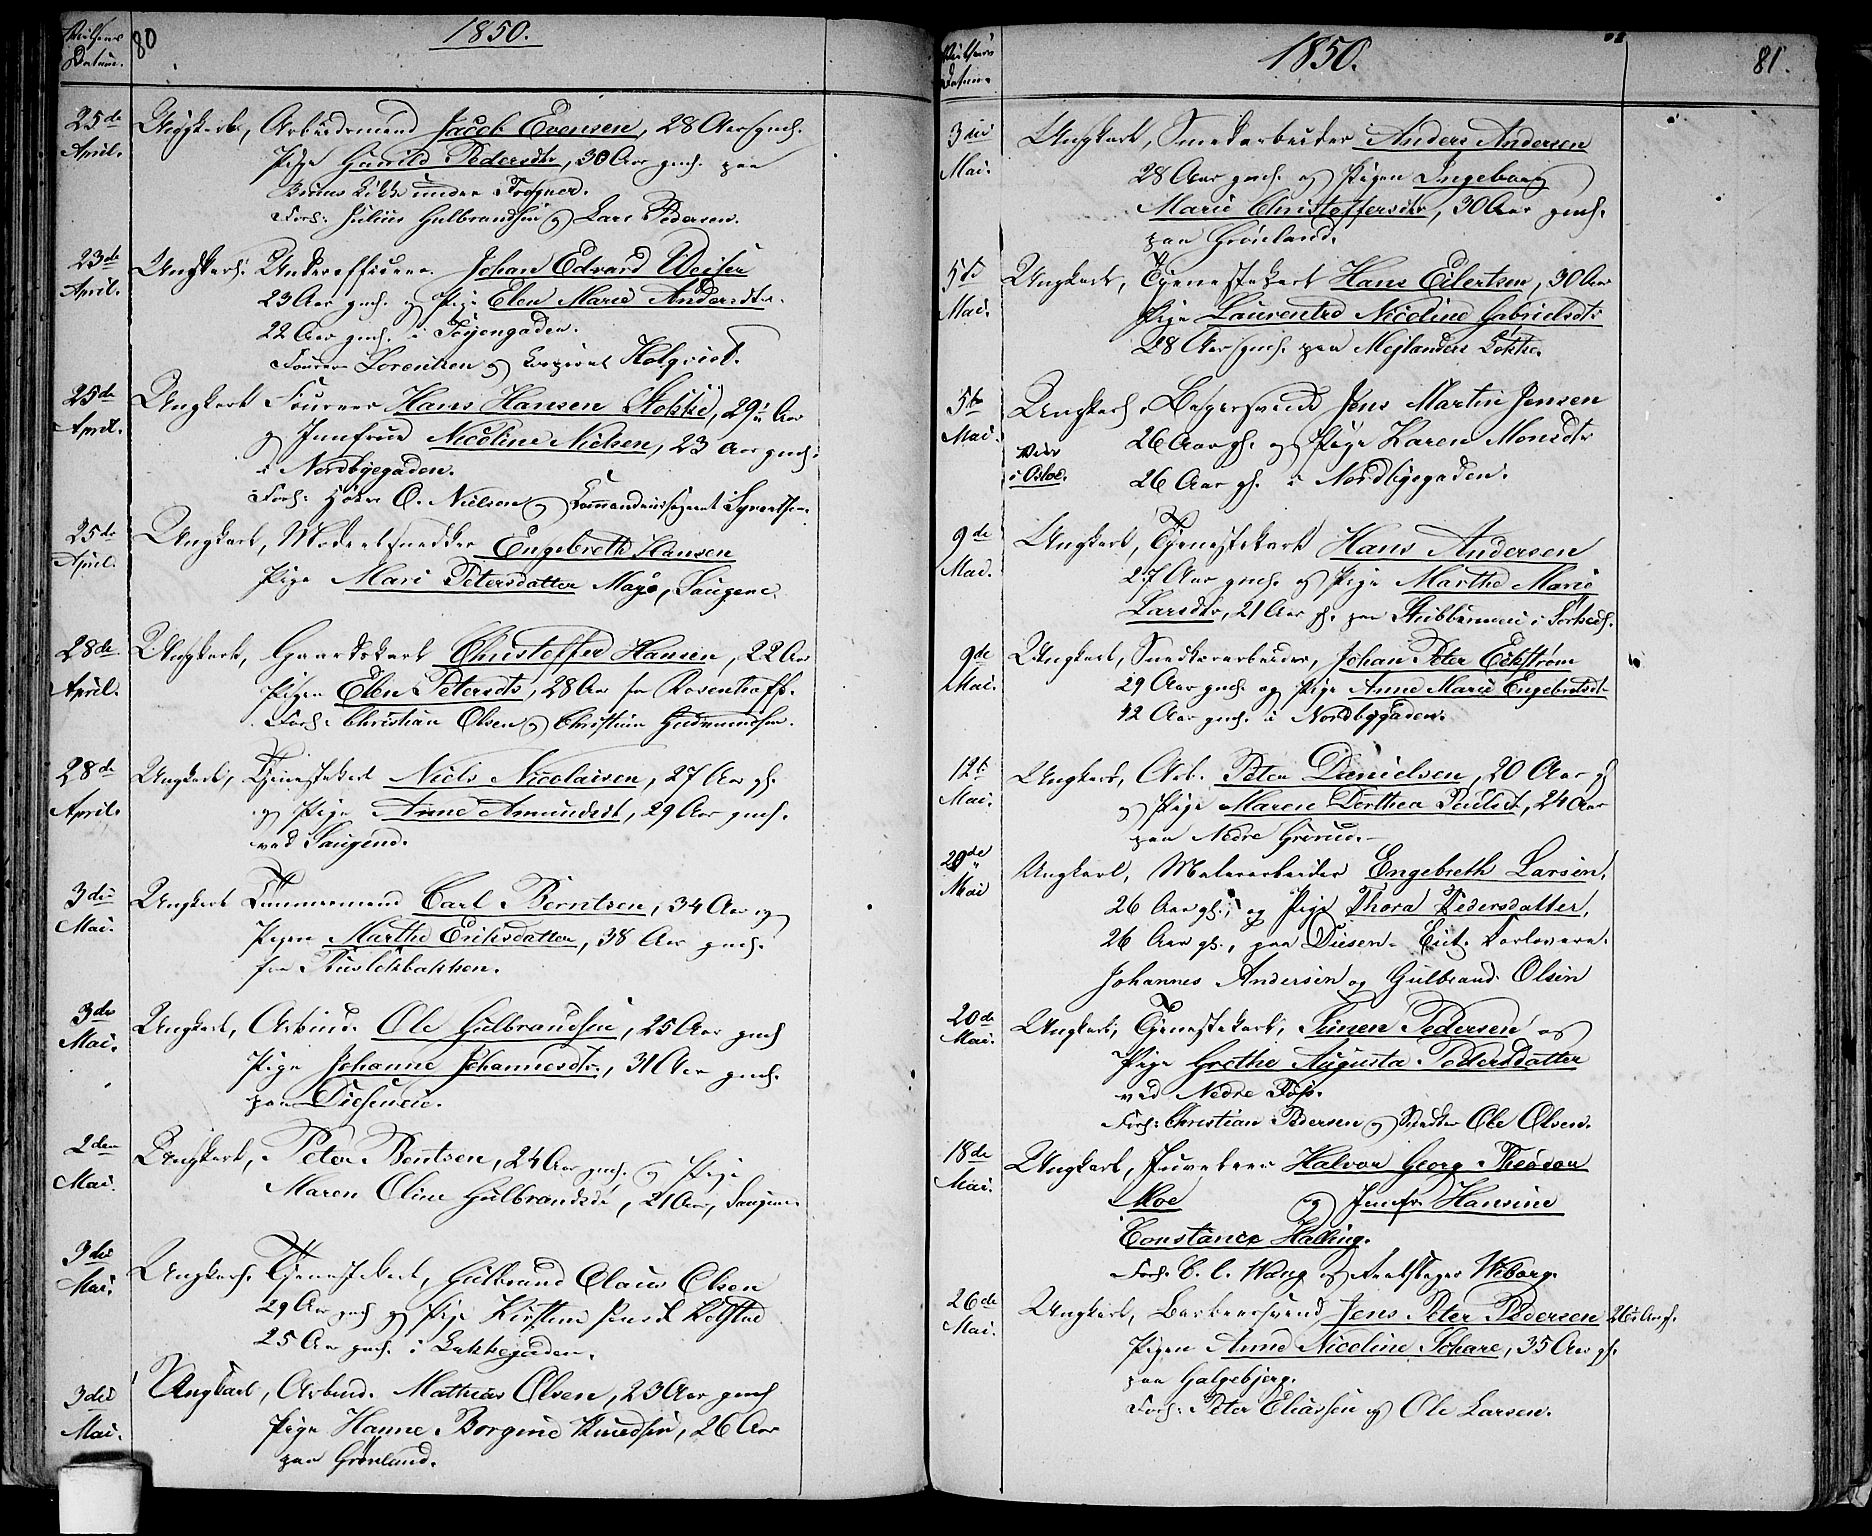 80
1850.
Datum.
25de April. Ungkarl, Arbeidsmand Jacob Evensen, 28 Aar gmh.
Pige Gunild Pedersdtr, 30 Aar gmh. paa
Løkke under Frogner.
Forl: Julius Gulbrandsen og Lars Pedersen.
23de April. Ungkarl. Underofficeer Johan Edvard Weiser
23 Aar gmh. og Pige Elen Marie Andersdtr.
22 Aar gmh. i Tøyengaden.
Fourer Lorentzen og Corporal Holqvist.
25de April. Ungkarl Fourer Hans Hansen Stokke, 29 Aar
og Jomfrue Nicoline Nielsen, 23 Aar gmh:
i Nordbyegaden.
Forl: Høker O. Nielsen og Commandeersergeant Syvertsen
25de April. Ungkarl, Modelsnedker Engebreth Hansen
Pige Mari Petersdatter Maja, Saugene.
28de April. Ungkarl, Gaardskarl Christoffer Hansen, 22 Aar
Pigen Elen Petersdtr, 28 Aar fra Rosenhoff.
Forl: Christian Olsen og Christian Gudmundsen.
28de April. Ungkarl, Tjenestekarl Niels Nicolaisen, 27 Aar gh.
og Pige Anne Amundsdt, 29 Aar gmh.
ved Saugene.
3die Mai. Ungkarl Tømmermand Carl Berntsen, 34 Aar og
Pigen Marthe Eriksdatter, 38 Aar gmh.
fra Ruseløkbakken.
3die Mai. Ungkarl, Arbmd. Ole Gulbrandsen, 25 Aar gmh
Pige Johanne Johannesdtr., 31 Aar gmh.
paa Dieseneie.
2den Mai. Ungkarl, Peter Bentsen, 24 Aar gmh. og Pige
Maren Oline Gulbrandsdt, 21 Aar, Saugene
3die Mai. Ungkarl. Tjenestekarl, Gulbrand Claus Olsen
29 Aar gmh og Pige Kirstine Jensdt
25 Aar gmh. i Lakkegaden.
3die Mai. Ungkarl, Arbmd. Mathias Olsen, 23 Aar gmh
Pige Hanne Borgine Knudsen, 26 Aar
paa Grønland.
1850.
81.
Datum.
3die Mai. Ungkarl, Smedarbeider Anders Andersen
28 Aar gmh. og Pigen Ingeborg
Marie Christoffersdtr, 30 Aar gmh.
paa Grønland.
5te Mai. Ungkarl, Tjenestekarl Hans Eilertsen, 30 Aar
Pige Laurentze Nicoline Gabrielsdtr
28 Aar gmh. paa Mejlænders Løkke.
5te Mai. Ungkarl, Bagersvend Jens Martin Jensen
26 Aar gh. og Pige Karen Monsdtr
Viet i Osloe. 26 Aar gh. i Nordbyegaden.
9de Mai. Ungkarl, Tjenestekarl Hans Andersen
27 Aar gmh. og Pige Marthe Marie
Larsdtr, 21 Aar gh. paa Stubberud i Sørkedl.
9de Mai. Ungkarl, Snedkerarbeider, Johan Peter Eckstrøm
29 Aar gmh. og Pige Anne Marie Engebretsdt
42 Aar gmh. i Nordbygaden.
12te Mai. Ungkarl, Arb. Peter Danielsen, 20 Aar gh
og Pige Maren Dorthea Paulsdt, 24 Aar
paa Nedre Grorud.
20de Mai Ungkarl, Malerarbeider Engebreth Larsen,
26 Aar gh., og Pige Thora Pedersdatter,
26 Aar gh., paa Diesen. Eiet. Forlovere.
Johannes Andersen og Gulbrand Olsen
20de Mai. Ungkarl, Tjenestekarl, Simen Pedersen og
Pige Grethe Augusta Pedersdatter
ved Nedre Foss.
Forl: Christian Pedersen og Snedker Ole Olsen.
18de Mai. Ungkarl, Halvor Georg Theodor
Moe og Jomfr. Hansine
Constance Halling.
Forl. C. C. Wang og Wiborg.
26de Mai. Ungkarl, Barbeersvend Jens Peter Pedersen 26 Aar g.
Pigen Anne Nicoline Schare, 35 Aar gh.
paa Galgebjerg.
Forl: Peter Eliassen og Ole Larsen.